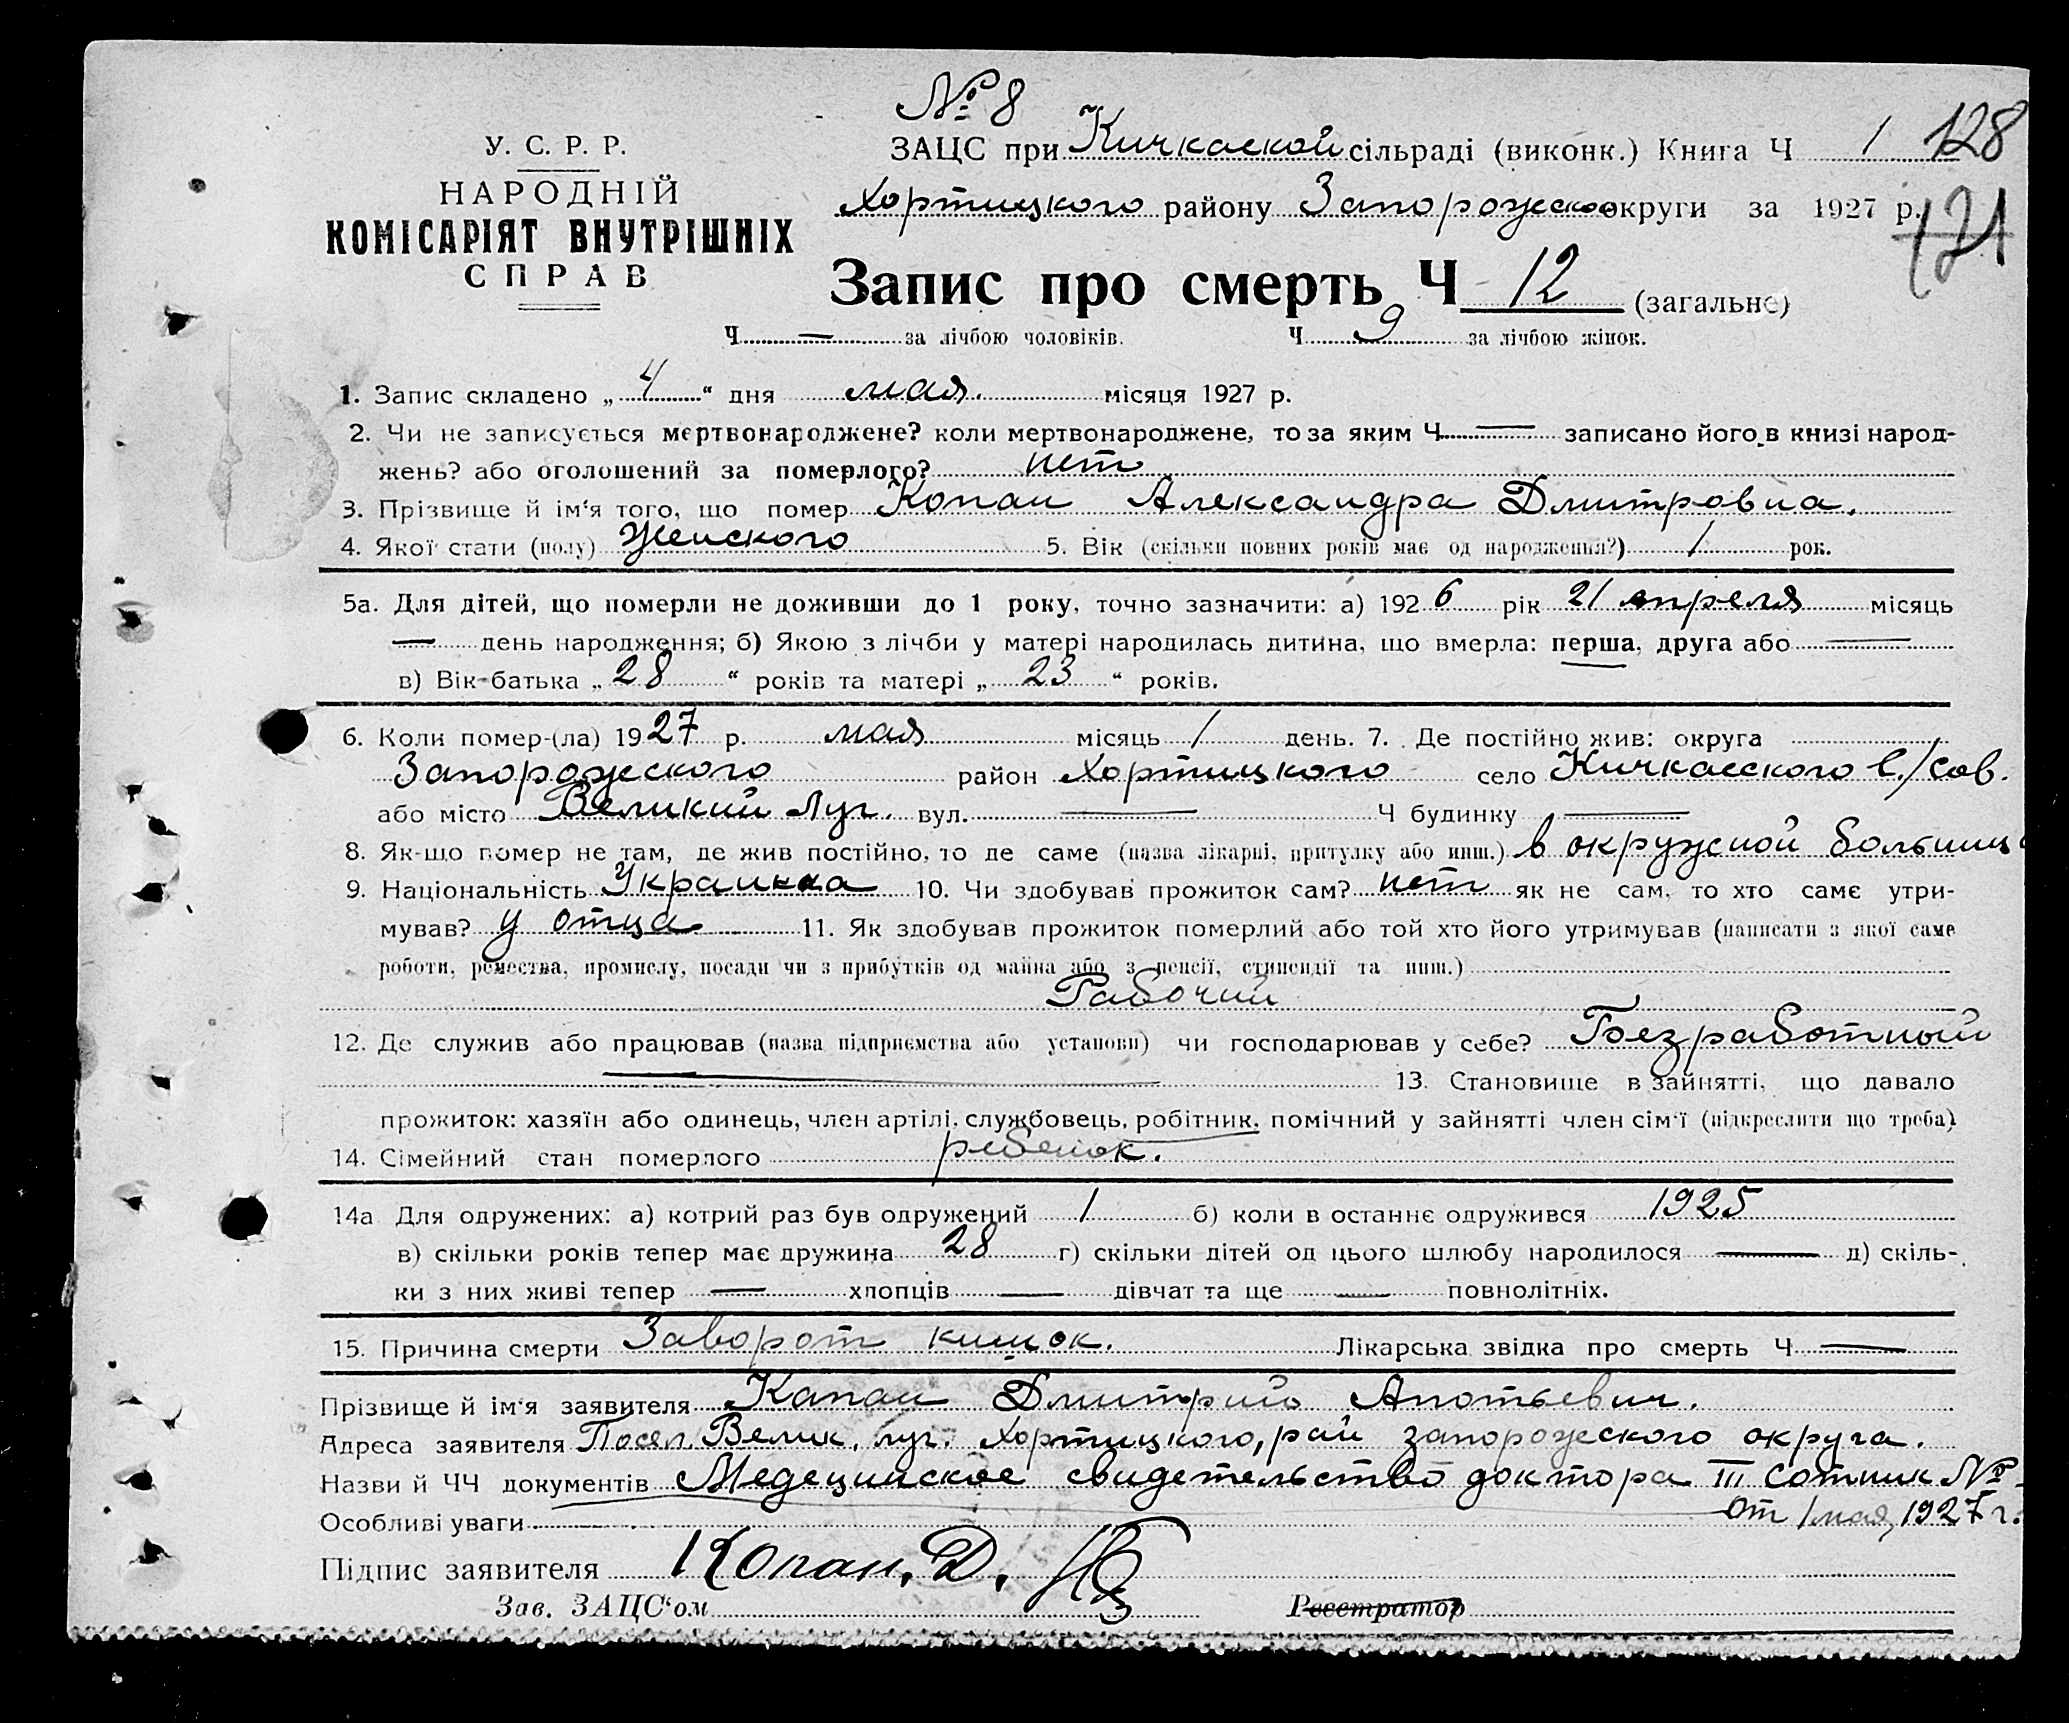 № 8
У. С. Р. Р.
НАРОДНІЙ
КОМІСАРІЯТ ВНУТРІШНІХ
СПРАВ
ЗАЦС при Кичкаской сільраді (виконк.) Книга Ч 1 128
Хортицкого району Запорожско округи за 1927 р. 121
Запис про смерть Ч 12 (загальне)
Ч — за лічбою чоловіків. Ч 9 за лічбою жінок.
1. Запис складено „ 4 “ дня мая. місяця 1927 р.
2. Чи не записується мертвонароджене? коли мертвонароджене, то за яким Ч — записано його в книзі народ-
жень? або оголошений за померлого? нет
3. Прізвище й ім‘я того, що помер Копан Александра Дмитровна.
4. Якої стати (полу) Женского 5. Вік (скільки повних років має од народження?) 1 рок.
5а. Для дітей, що померли не доживши до 1 року, точно зазначити: а) 1926 рік 21 апреля місяць
— день народження; б) Якою з лічби у матері народилась дитина, що вмерла: перша, друга або —
в) Вік батька „ 28 “ років та матері „ 23 “ років.
6. Коли помер-(ла) 1927 р. мая місяць 1 день. 7. Де постійно жив: округа
Запорожского район Хортицкого село Кичкасского с./сов.
або місто Великий Луг. вул. — Ч будинку —
8. Як-що помер не там, де жив постійно, то де саме (назва лікарні, притулку або инш.) в окружной больниц
9. Національність Украинка 10. Чи здобував прожиток сам? нет як не сам, то хто саме утри-
мував? у отца 11. Як здобував прожиток померлий або той хто його утримував (написати з якої саме
роботи, ремества, промислу, посади чи з прибутків од майна або з пенсії, стипендії та инш.)
Рабочий
12. Де служив або працював (назва підприємства або установи) чи господарював у себе? Безработный
— 13. Становище в зайнятті, що давало
прожиток: хазяїн або одинець, член артілі, службовець, робітник, помічний у зайнятті член сім‘ї (підкреслити що треба)
14. Сімейний стан померлого ребенок.
14а Для одружених: а) котрий раз був одружений 1 б) коли в останнє одружився 1925
в) скільки років тепер має дружина 28 г) скільки дітей од цього шлюбу народилося — д) скіль-
ки з них живі тепер — хлопців — дівчат та ще — повнолітніх.
15. Причина смерти Заворот кишок. Лікарська звідка про смерть Ч —
Прізвище й ім‘я заявителя Капан Дмитрий Апотьевич.
Адреса заявителя Посел. Велик. луг. Хортицкого, рай запорожского округа.
Назви й ЧЧ документів Медецинское свидетельство доктора III сотник №
от 1 мая, 1927 г.
Особливі уваги
Підпис заявителя Копан. Д.
Зав. ЗАЦС‘ом Реєстратор